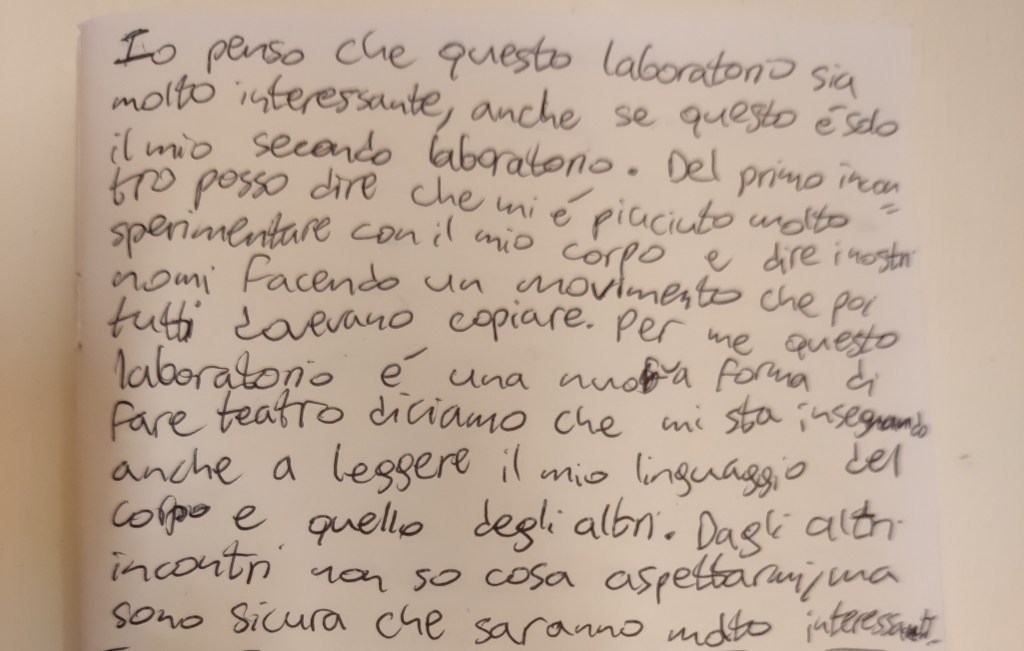 Io penso che questo laboratorio sia
molto interessante, anche se questo é solo
il mio secondo laboratorio. Del primo incon=
tro posso dire che mi é piaciuto molto
sperimentare con il mio corpo e dire i nostri
nomi facendo un movimento che poi
tutti dovevano copiare. Per me questo
laboratorio é una nuova forma di
fare teatro diciamo che mi sta insegnando
anche a leggere il mio linguaggio del
corpo e quello degli altri. Dagli altri
incontri non so cosa aspettarmi, ma
sono sicura che saranno molto interessanti.